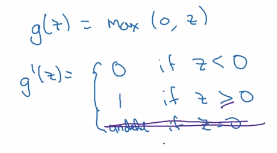 g(z) = max (0, z)
g'(z) = { 0 if z < 0
1 if z ≥ 0
if z = 0